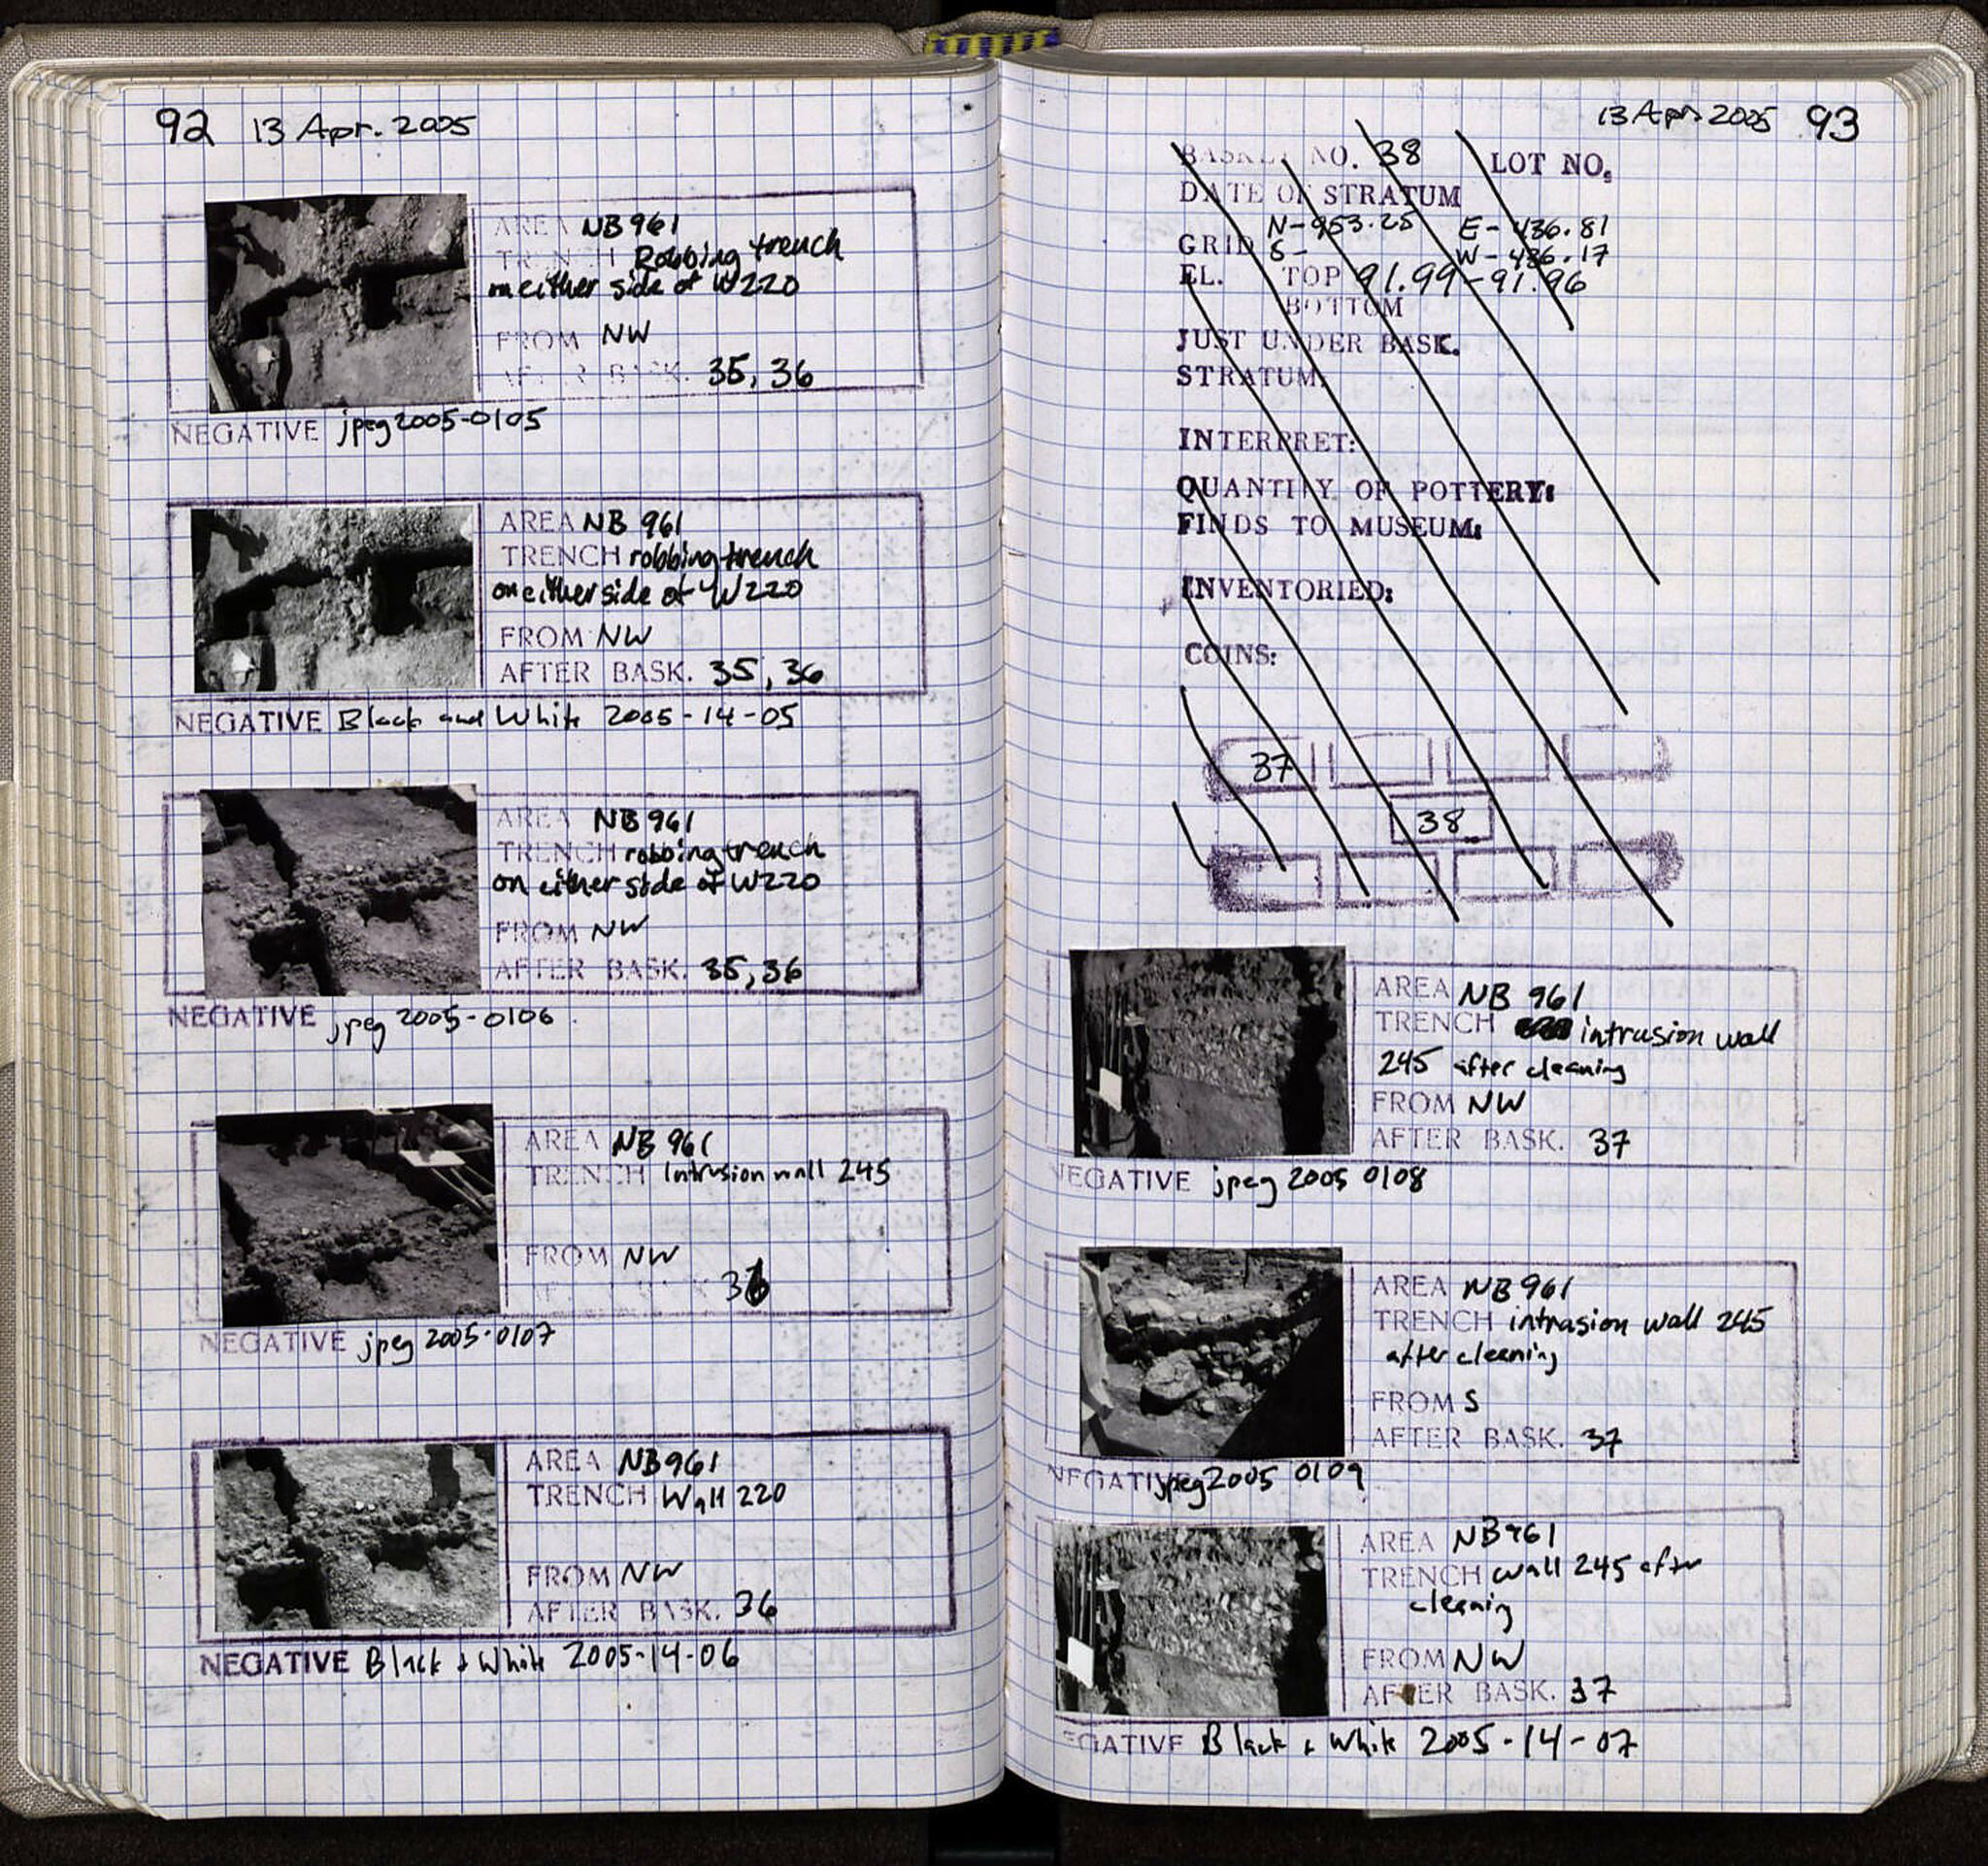 92 13 Apr. 2005
AREA NB 961
TRENCH Robbing trench
on either side of W220
FROM NW
AFTER BASK. 35, 36
NEGATIVE jpeg 2005-0105
AREA NB 961
TRENCH robbing trench
on either side of W220
FROM NW
AFTER BASK. 35, 36
NEGATIVE Black and White 2005-14-05
AREA NB 961
TRENCH robbing trench
on either side of W220
FROM NW
AFTER BASK. 35, 36
NEGATIVE jpeg 2005-0106
AREA NB 961
TRENCH Intrusion wall 245
FROM NW
AFTER BASK 36
NEGATIVE jpeg 2005-0107
AREA NB 961
TRENCH Wall 220
FROM NW
AFTER BASK. 36
NEGATIVE Black & White 2005-14-06
13 Apr. 2005 93
BASKET NO. 38 LOT NO.
DATE OF STRATUM
N-953.25 E-436.81
GRID S- W-436.17
EL. TOP 91.99-91.96
BOTTOM
JUST UNDER BASK.
STRATUM.
INTERPRET:
QUANTITY OF POTTERY:
FINDS TO MUSEUM:
INVENTORIED:
COINS:
37
38
AREA NB 961
TRENCH intrusion wall
245 after cleaning
FROM NW
AFTER BASK. 37
NEGATIVE jpeg 2005 0108
AREA NB 961
TRENCH intrusion wall 245
after cleaning
FROM S
AFTER BASK. 37
NEGATIVE jpeg 2005 0109
AREA NB 961
TRENCH wall 245 after
cleaning
FROM NW
AFTER BASK. 37
NEGATIVE Black & White 2005-14-07